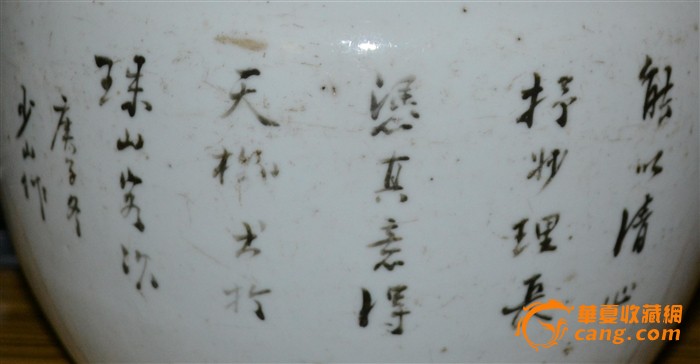 能以清心
抒妙理長
憑真意得
天機書於
珠山客次
庚子冬
少山作
華夏收藏網
cang.com